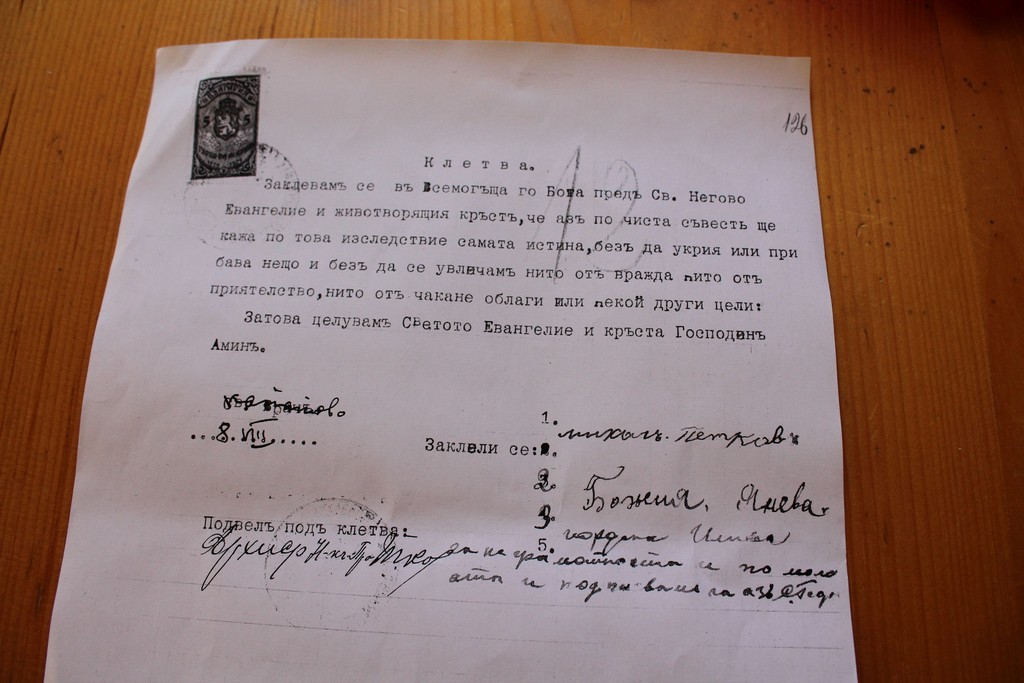 126
5 5
12
Клетва.
Заклевамъ се въ Всемогъща го Бога предъ Св. Негово
Евангелие и животворящия кръстъ,че азъ по чиста съвесть ще
кажа по това изследствие самата истина,безъ да укрия или при
бава нещо и безъ да се увличамъ нито отъ вражда нито отъ
приятелство,нито отъ чакане облаги или некой други цели:
Затова целувамъ Светото Евангелие и кръста Господинъ
Аминъ.
...8.VIII.....
1.
Петковъ
Заклели се:2.
2.
Божия. Янева.
3.
Подвелъ подъ клетва:
5.
Илиева